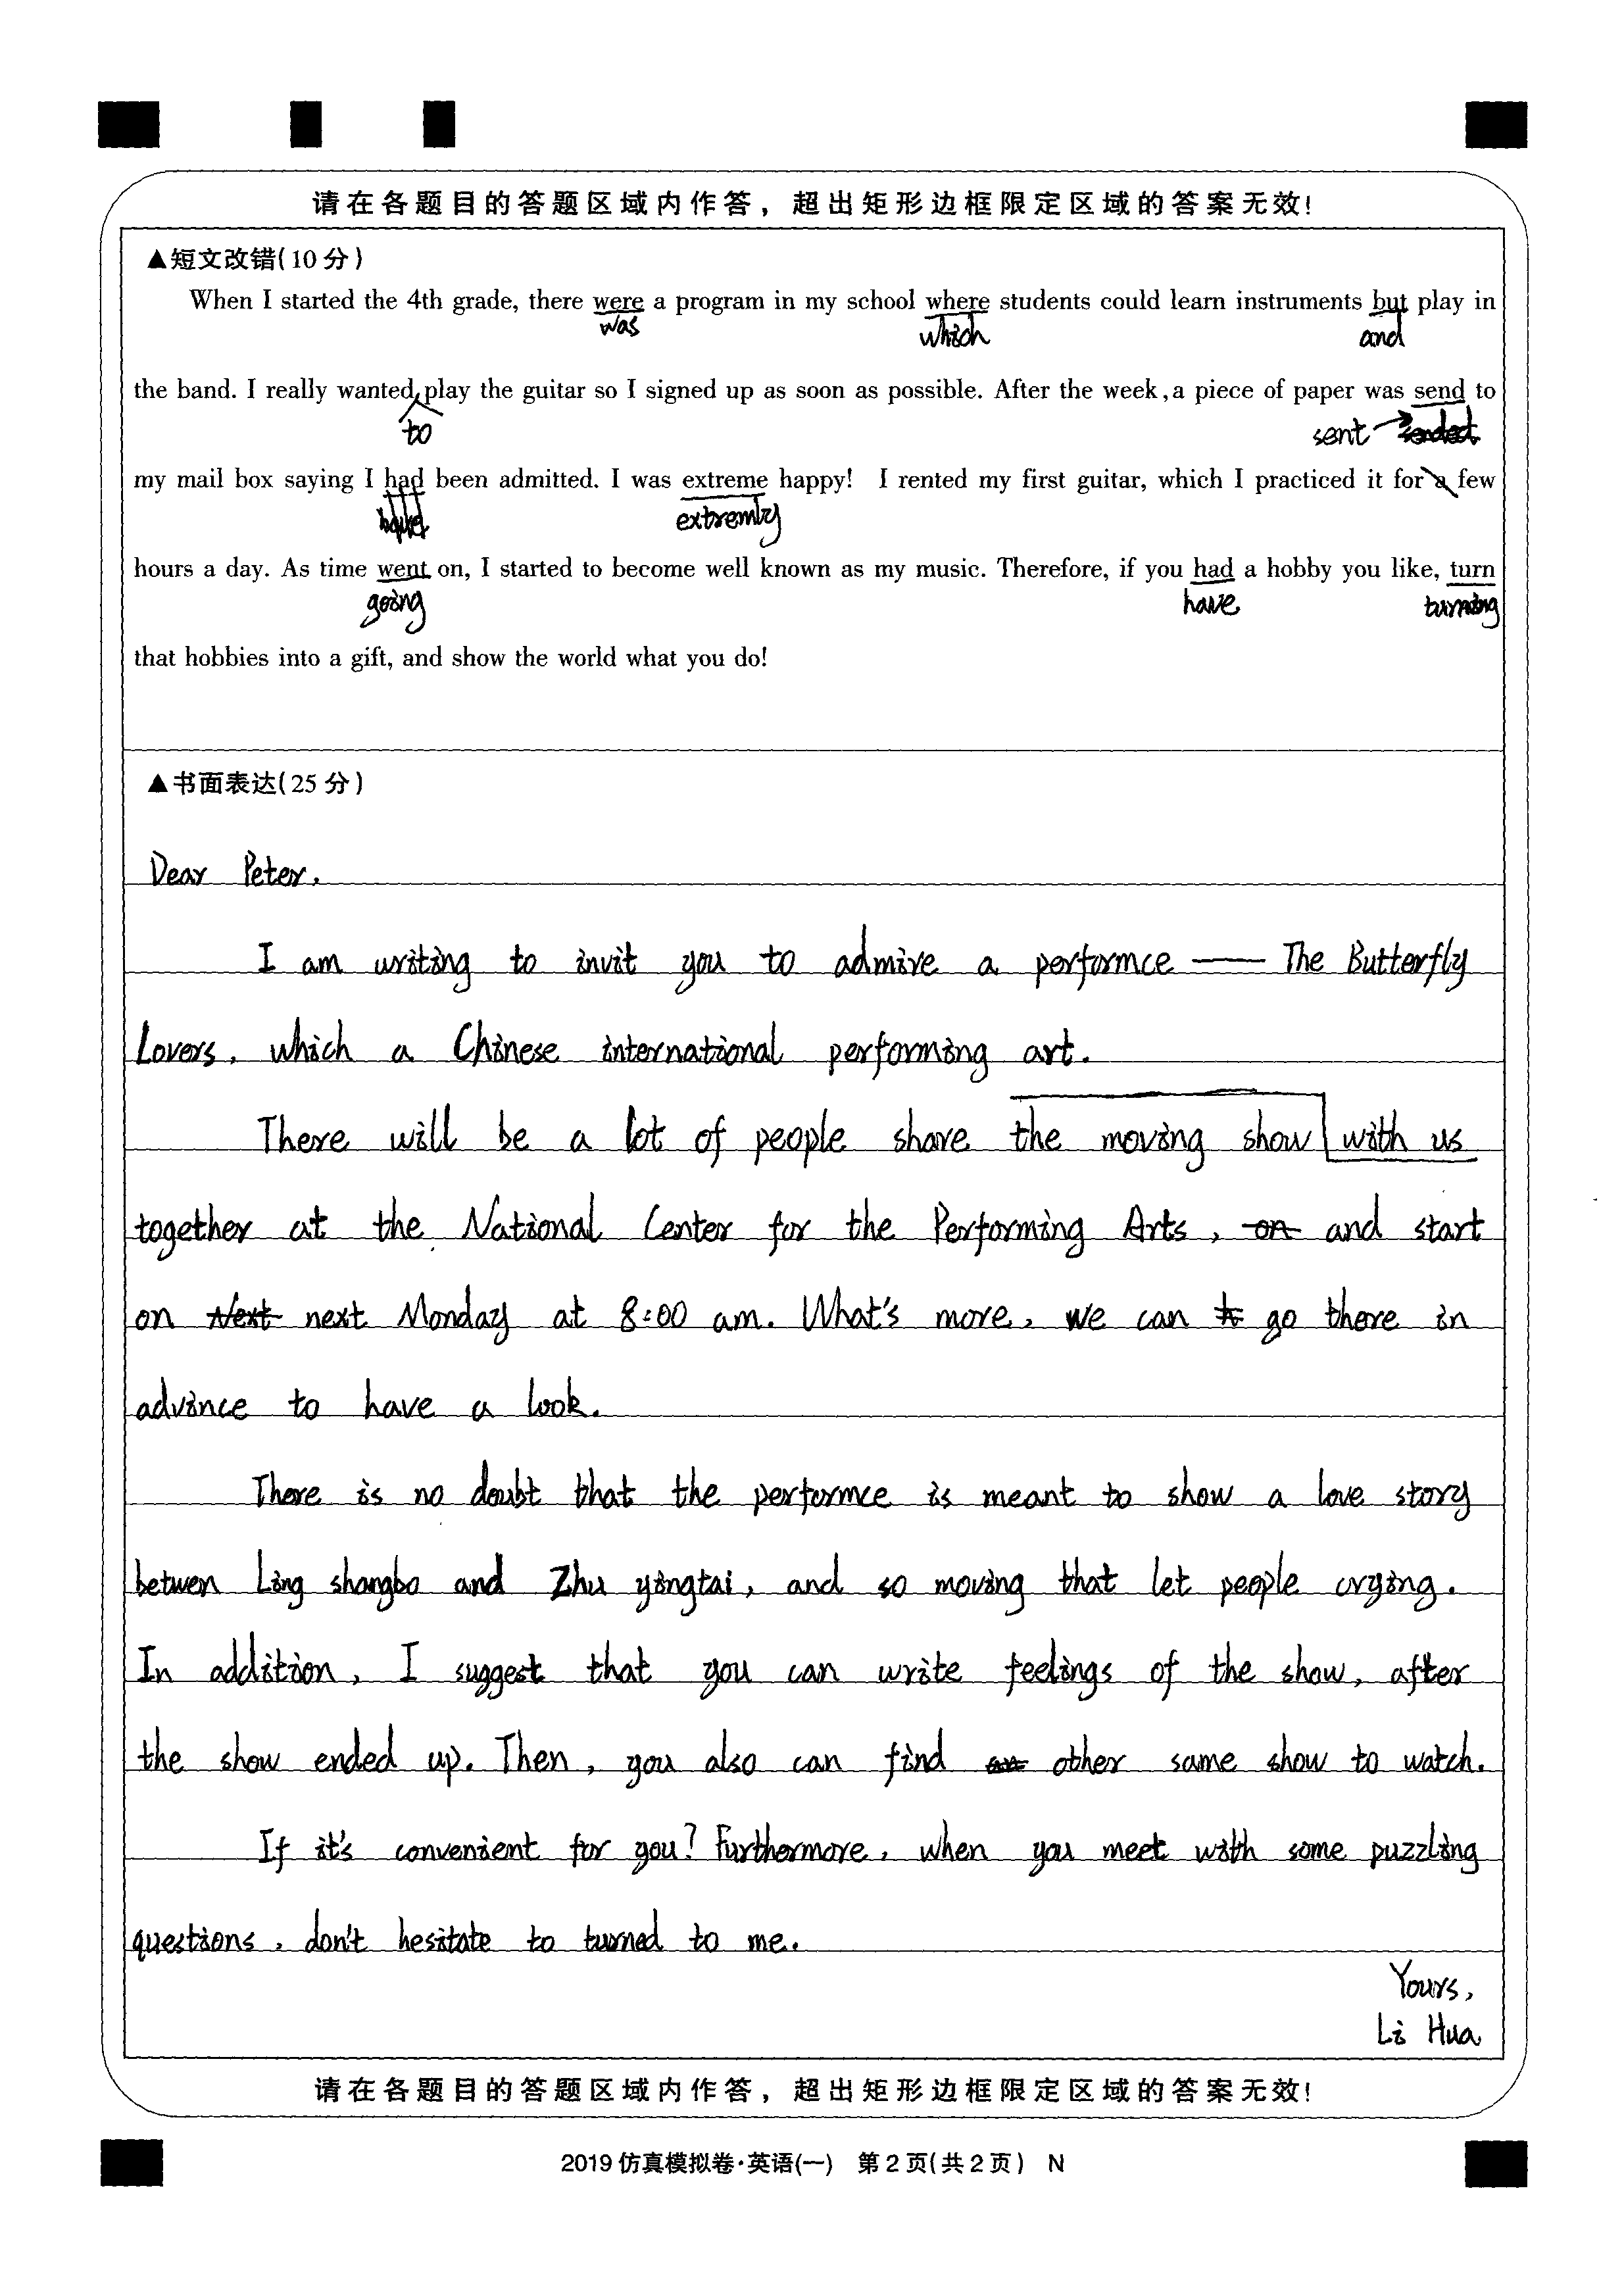 请在各题目的答题区域内作答，超出矩形边框限定区域的答案无效!
▲短文改错(10分)
When I started the 4th grade, there were a program in my school where students could learn instruments but play in
was which and
the band. I really wanted play the guitar so I signed up as soon as possible. After the week, a piece of paper was send to
to sent
my mail box saying I had been admitted. I was extreme happy! I rented my first guitar, which I practiced it for a few
extremly
hours a day. As time went on, I started to become well known as my music. Therefore, if you had a hobby you like, turn
going have turning
that hobbies into a gift, and show the world what you do!
▲书面表达(25分)
Dear Peter,
I am writing to invit you to admire a performce —— The Butterfly
Lovers, which a Chinese international performing art.
There will be a lot of people share the moving show with us
together at the National Center for the Performing Arts, on and start
on Next next Monday at 8:00 am. What's more, we can go there in
advance to have a look.
There is no doubt that the performce is meant to show a love story
betwen Ling shangbo and Zhu yingtai, and so moving that let people crying.
In addition, I suggest that you can write feelings of the show, after
the show ended up. Then, you also can find other same show to watch.
If it's convenient for you? Furthermore, when you meet with some puzzling
questions, don't hesitate to turned to me.
Yours,
Li Hua
请在各题目的答题区域内作答，超出矩形边框限定区域的答案无效!
2019仿真模拟卷·英语(一) 第2页(共2页) N